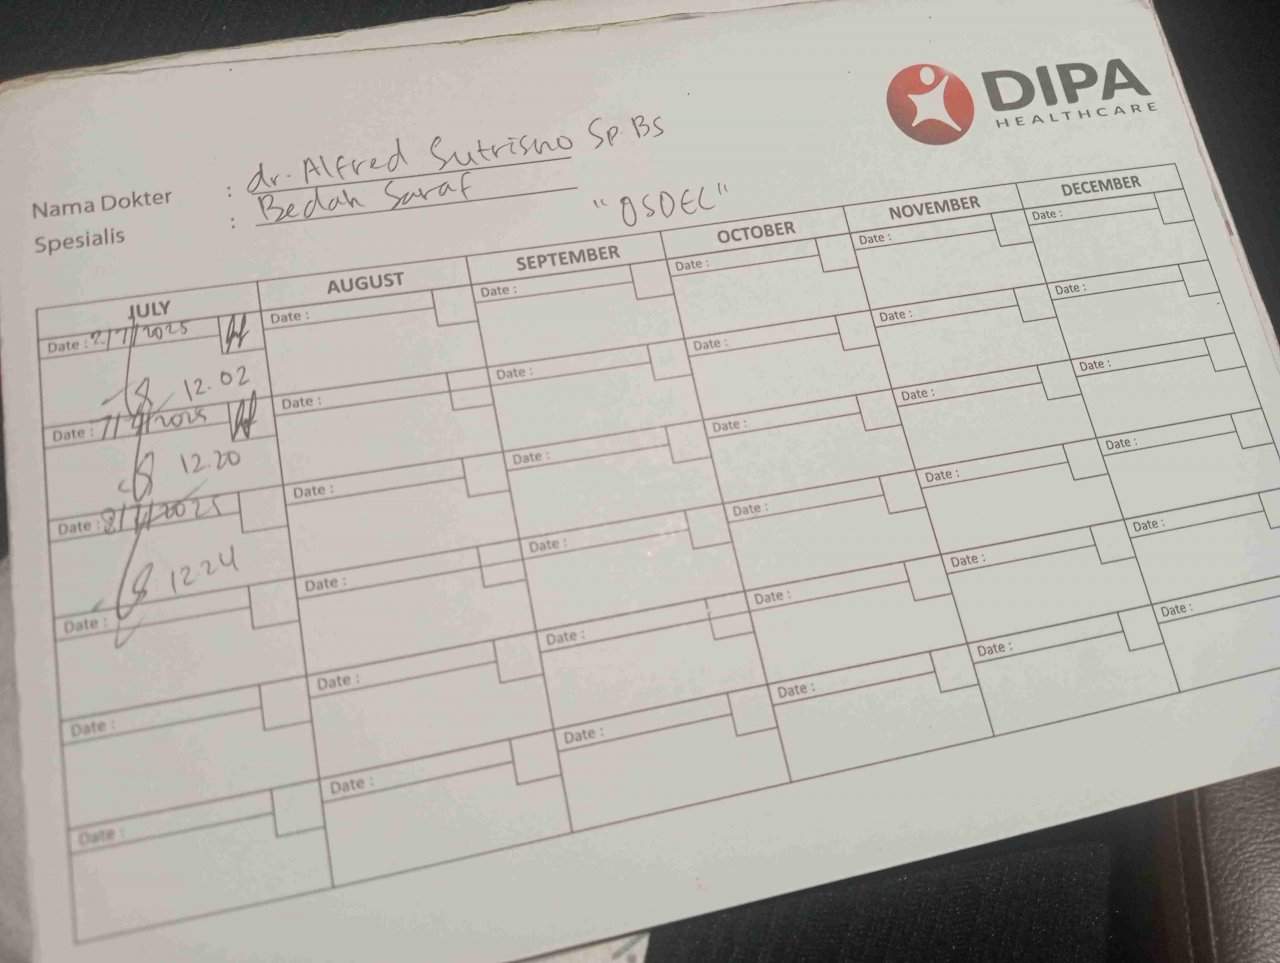 DIPA
HEALTHCARE
Nama Dokter : dr. Alfred Sutrisno Sp BS
Spesialis : Bedah Saraf
"OSDEL"
JULY AUGUST SEPTEMBER OCTOBER NOVEMBER DECEMBER
Date : 2/7/2025 Date : Date : Date : Date : Date :
12.02
Date : 7/7/2025 Date : Date : Date : Date : Date :
12.20
Date : 8/7/2025 Date : Date : Date : Date : Date :
12.24
Date : Date : Date : Date : Date : Date :
Date : Date : Date : Date : Date : Date :
Date : Date : Date : Date : Date : Date :